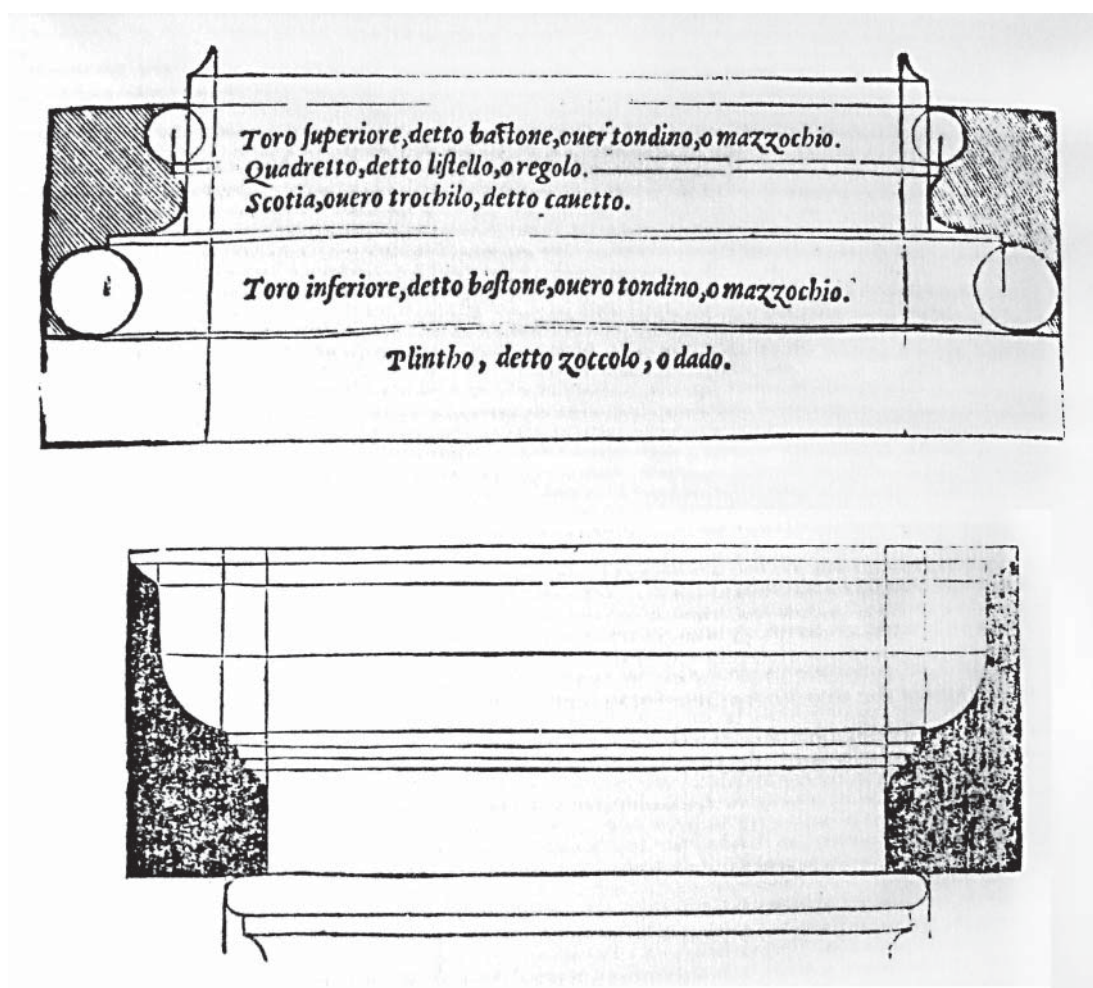 Toro ſuperiore,detto baſtone,ouer tondino,o mazzochio.
Quadretto,detto liſtello,o regolo.
Scotia,ouero trochilo,detto cauetto.
Toro inferiore,detto baſtone,ouero tondino,o mazzochio.
Plintho, detto zoccolo, o dado.